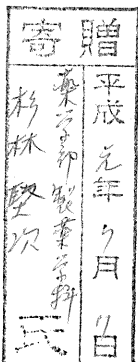 寄贈
平成元年7月7日
薬学部製薬学科
杉林堅次氏